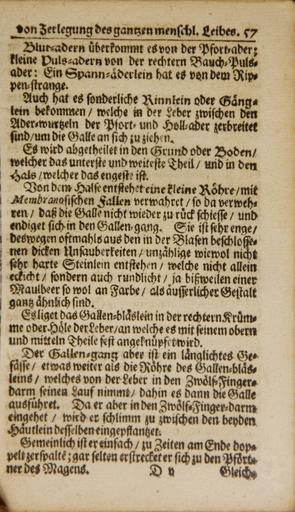 von Zerlegung des gantzen menschl. Leibes. 57
Blut-adern überkommt es von der Pfort-ader;
kleine Puls-adern von der rechtern Bauch-Puls-
ader: Ein Spann-äderlein hat es von dem Rip-
pen-strange.
Auch hat es sonderliche Rinnlein oder Gäng-
lein bekommen / welche in der Leber zwischen den
Ader-wurtzeln der Pfort- und Holl-ader zerbreitet
sind/um die Galle an sich zu ziehen.
Es wird abgetheilet in den Grund oder Boden/
welcher das unterste und weiteste Theil / und in den
Hals / welcher das engeste ist.
Von dem Halse entstehet eine kleine Röhre/mit
Membranosischen Fallen verwahret / so da verweh-
ren / daß die Galle nicht wieder zu rück schiesse / und
endiget sich in den Gallen-gang. Sie ist sehr enge/
deswegen oftmahls aus den in der Blasen beschlosse-
nen dicken Unsauberkeiten / unzählige wiewol nicht
sehr harte Steinlein entstehen / welche nicht allein
eckicht / sondern auch rundlicht / ja bißweilen einer
Maulbeer so wol an Farbe / als äusserlicher Gestalt
gantz ähnlich sind.
Es liget das Gallen-bläslein in der rechtern Krüm-
me oder Höle der Leber/an welche es mit seinem obern
und mitteln Theile fest angeknüpfet wird.
Der Gallen-gang aber ist ein länglichtes Ge-
fässe / etwas weiter als die Röhre des Gallen-bläs-
leins / welches von der Leber in den Zwölf-Finger-
darm seinen Lauf nimmt / dahin es dann die Galle
ausführet. Da er aber in den Zwölf-Finger-darm
eingehet / wird er schlimm zu zwischen den beyden
Häutlein desselben eingepflantzet.
Gemeinlich ist er einfach / zu Zeiten am Ende dop-
pelt zerspalte; gar selten erstrecket er sich zu den Pfört-
ner des Magens. D v Gleich-